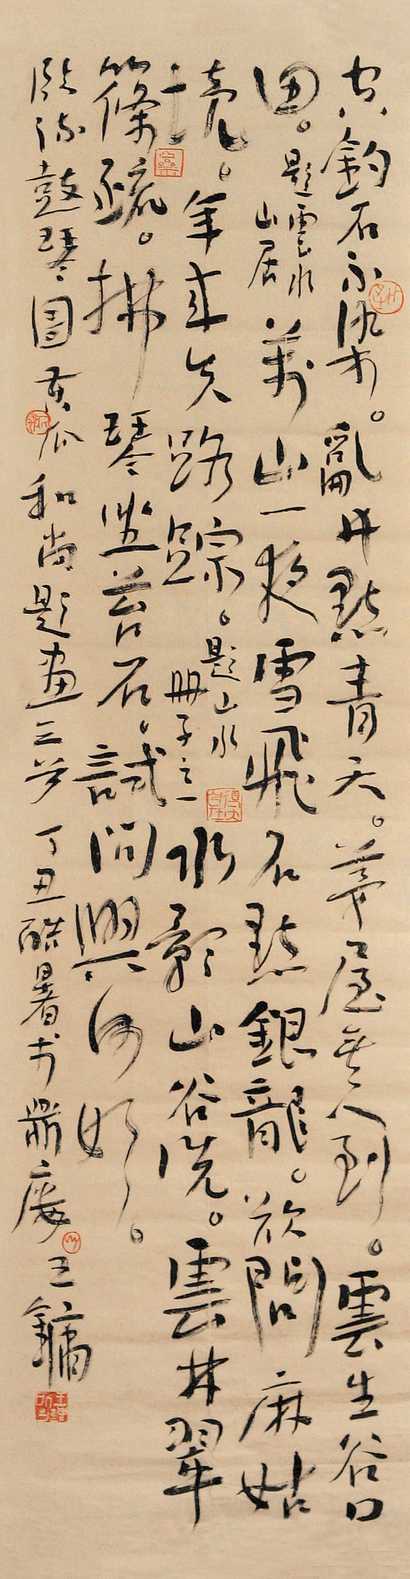 鈎石不。亂點青天。茅屋無人到。雲生谷口
田。題雲水山居 萬山一夜雪飛石點銀龍。欲問麻姑
年來失路蹤。題山水冊子之一 水影山谷洗。雲林翠
篠疏。拂琴坐苔石。試問興何如。
臨流鼓琴圖 苦瓜和尚題畫三首 丁丑酷暑書 鼎廬王鏞